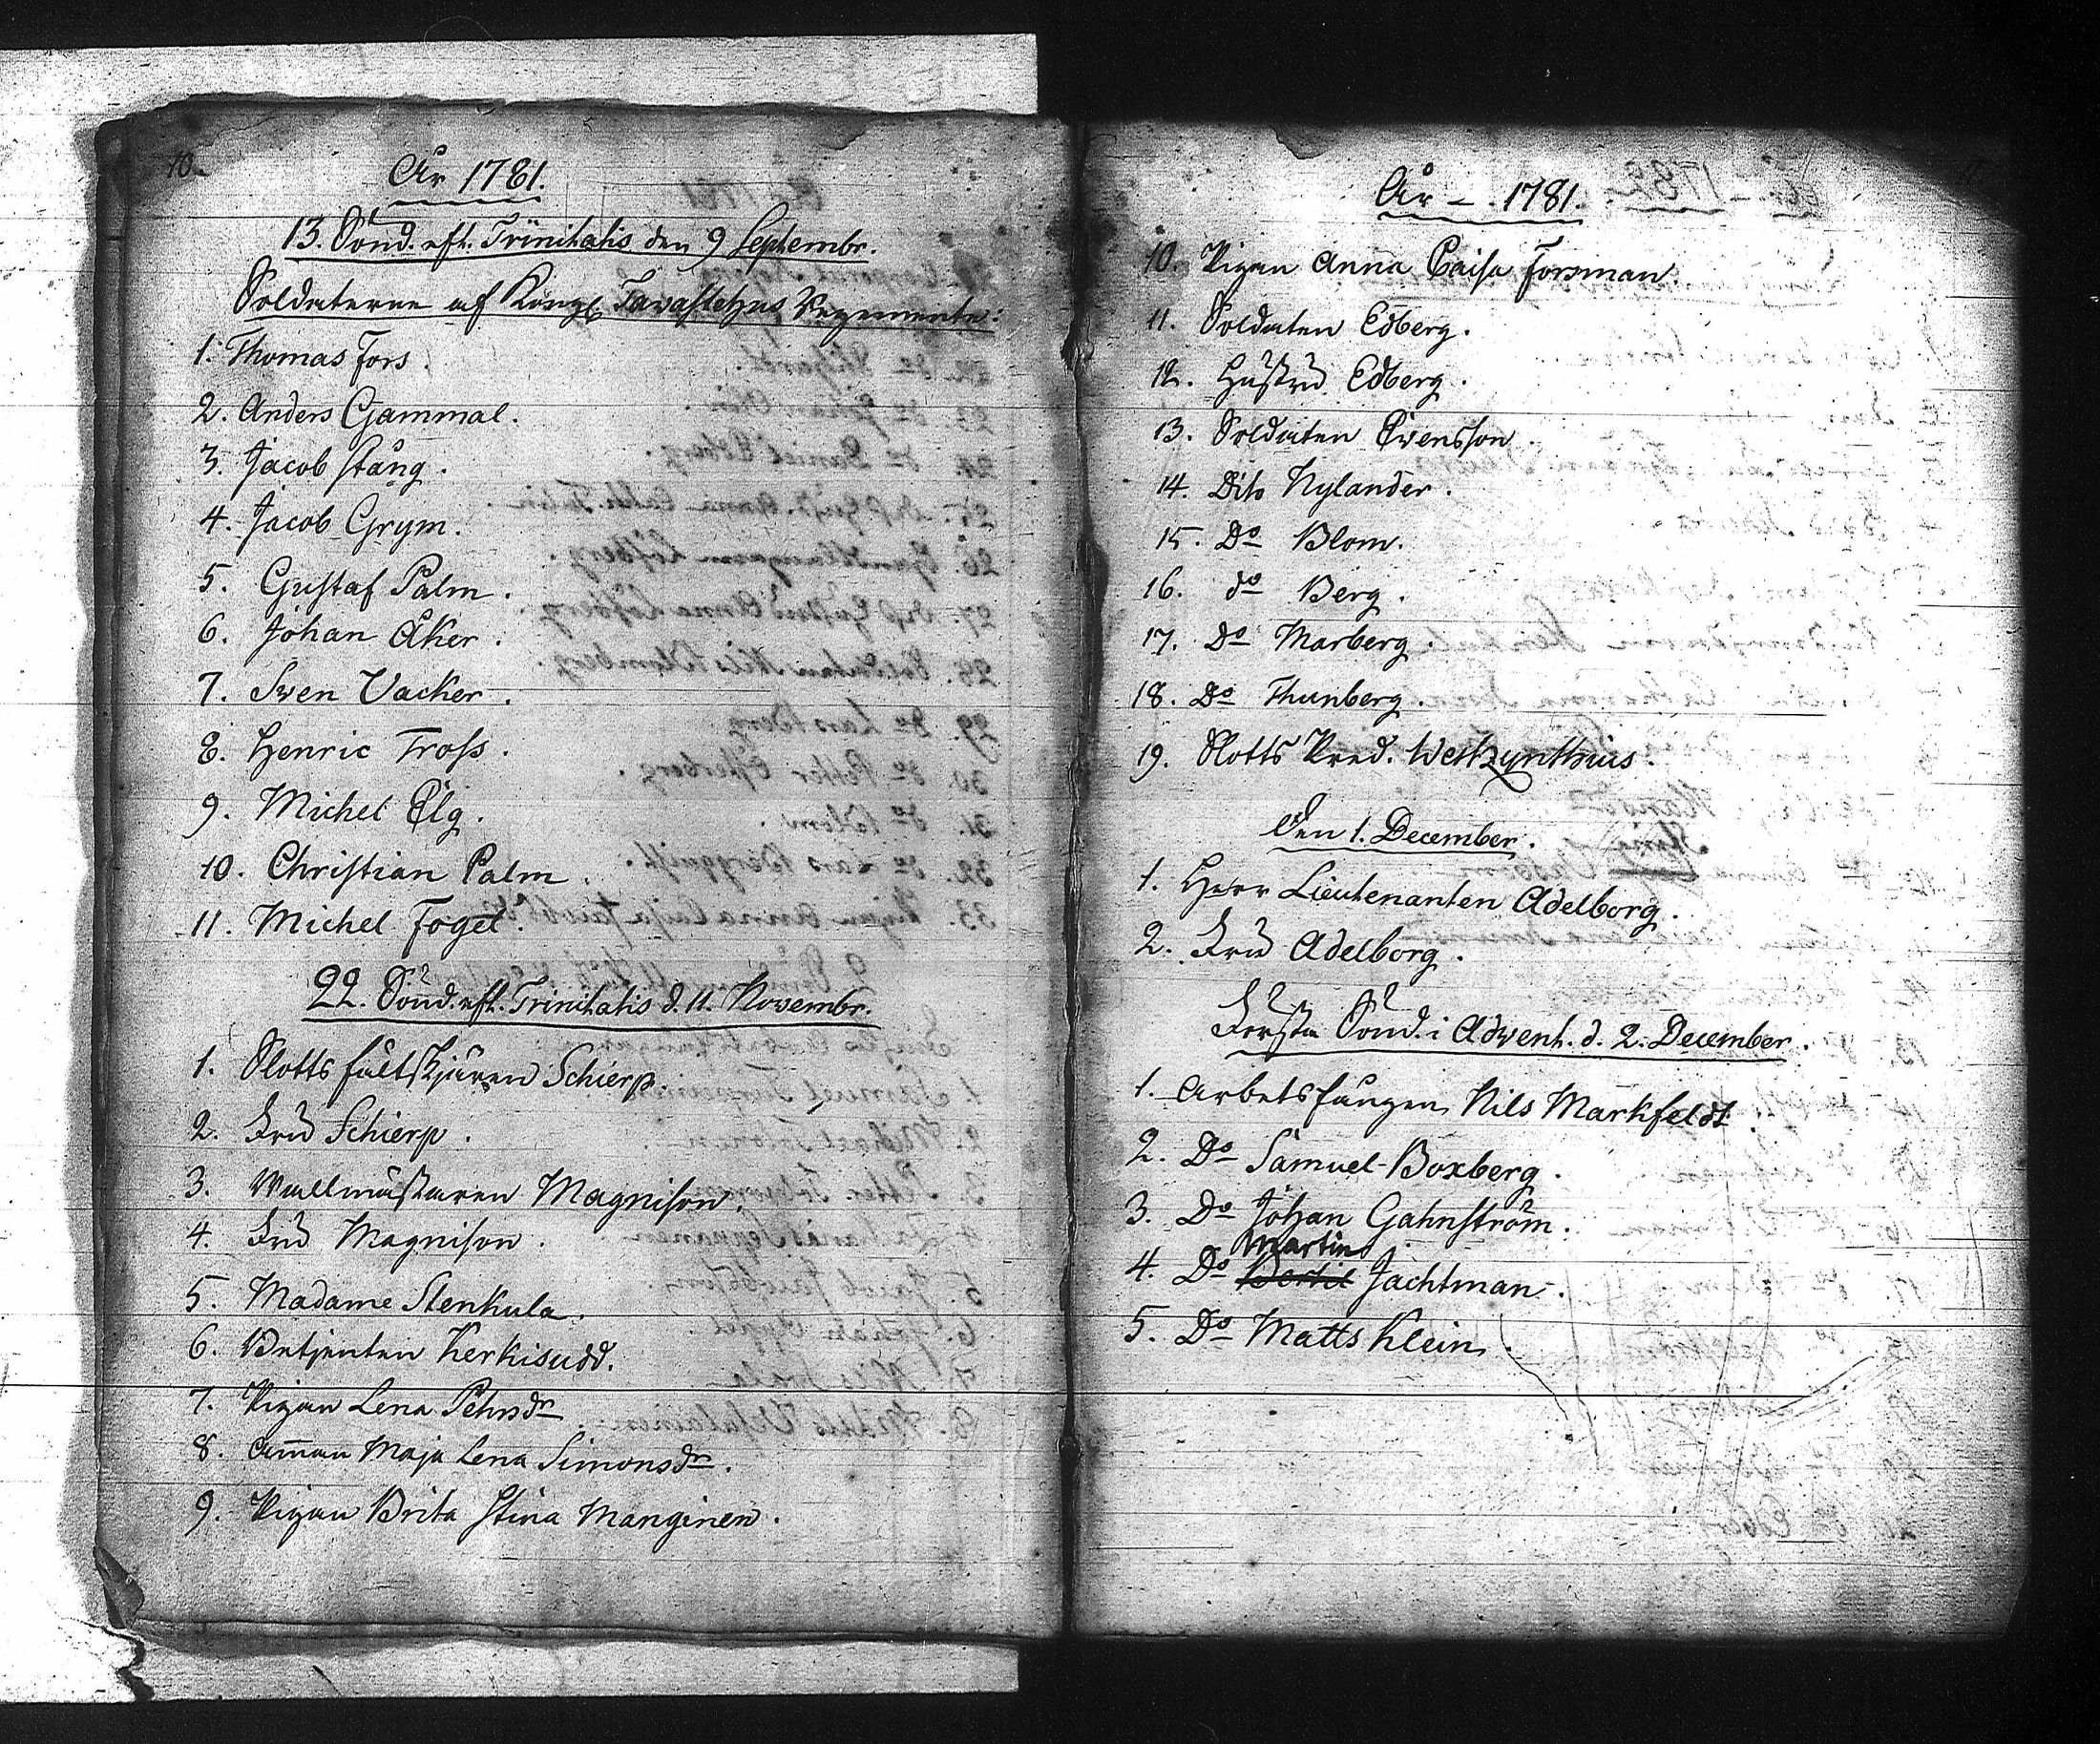 10.
År 1781.
13. Sönd. eft. Trinitatis den 9 Septembr.
Soldaterne af Kongl. Tawastehus Regemente:
1. Thomas Fors.
2. Anders Gammal.
3. Jacob Stång.
4. Jacob Grym.
5. Gustaf Palm.
6. Johan Åker.
7. Swen Vacker.
8. Henric Tross.
9. Michel Elg.
10. Christian Palm.
11. Michel Fogel.
22. Sönd. eft. Trinitatis d. 11. Novembr.
1. Slotts fältskjären Schierp.
2. Fru Schierp.
3. Wallmästaren Magnison.
4. Fru Magnison.
5. Madame Stenkula.
6. Betjenten Kerkisudd.
7. Pigan Lena Pehrsdr
8. Aman Maja Lena Simonsdr.
9. Pigan Brita Stina Manginen.
År - 1781.
10. Pigan Anna Caisa Forsman.
11. Soldaten Edberg.
12. Hustru Edberg.
13. Soldaten Swensson.
14. Dito Nylander.
15. Do Blom.
16. do Berg.
17. Do Marberg.
18. Do Thunberg.
19. Slotts Pred. Westzynthius.
Den 1. December.
1. Herr Lieutenanten Adelborg.
2. Fru Adelborg.
Första Sönd. i Adwent. d. 2. December.
1. Arbetsfången Nils Markfeldt.
2. Do Samuel Boxberg.
3. Do Johan Gahnström.
Martin
4. Do Bertil Jachtman.
5. Do Matts Klein.